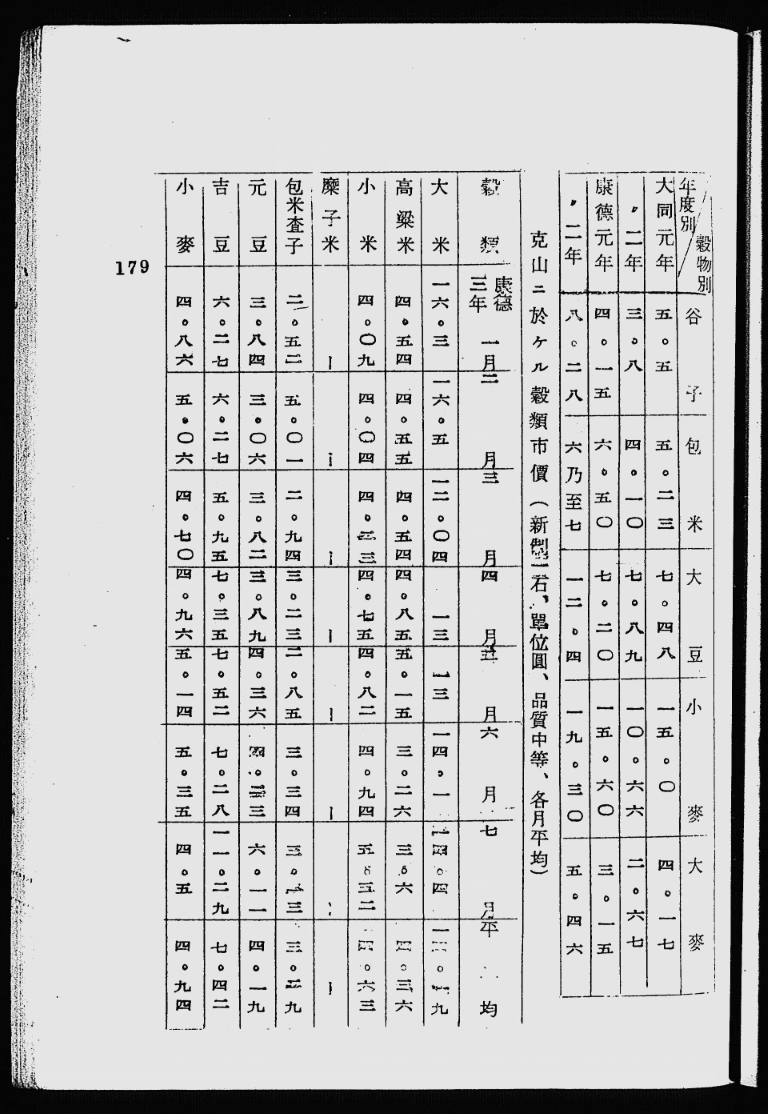 年度別 穀物別 谷子 包米 大豆 小麥 大麥
大同元年 五。五 五。二三 七。四八 一五。〇 四。一七
〃二年 三。八 四。一〇 七。八九 一〇。六六 二。六七
康德元年 四。一五 六。五〇 七。二〇 一五。六〇 三。一五
〃二年 八。二八 六乃至七 一二。四 一九。三〇 五。四六
克山ニ於ケル穀類市價(新制一石、單位圓、品質中等、各月平均)
穀類 康德三年 一月 二月 三月 四月 五月 六月 七月 平均
大米 一六。三 一六。五 一二。〇四 一三 一三 一四。一 一四。四
高粱米 四。五四 四。五五 四。五四 四。八五 五。一五 三。二六 三。六
小米 四。〇九 四。〇四 四。七五 四。八二 四。九四 五。五二 四。六三
糜子米 | | | | | | | |
包米査子 二。五二 五。〇一 二。九四 三。二三 二。八五 三。三四 三。二九
元豆 三。八四 三。〇六 三。八二 三。八九 四。三六 六。一一 四。一九
吉豆 六。二七 六。二七 五。九五 七。三五 七。五二 七。二八 一一。二九 七。四二
小麥 四。八六 五。〇六 四。七〇 四。九六 五。一四 五。三五 四。五 四。九四
179